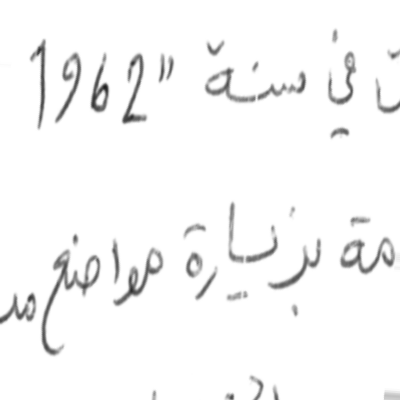 في سنة "1962
بزيارة مواضع